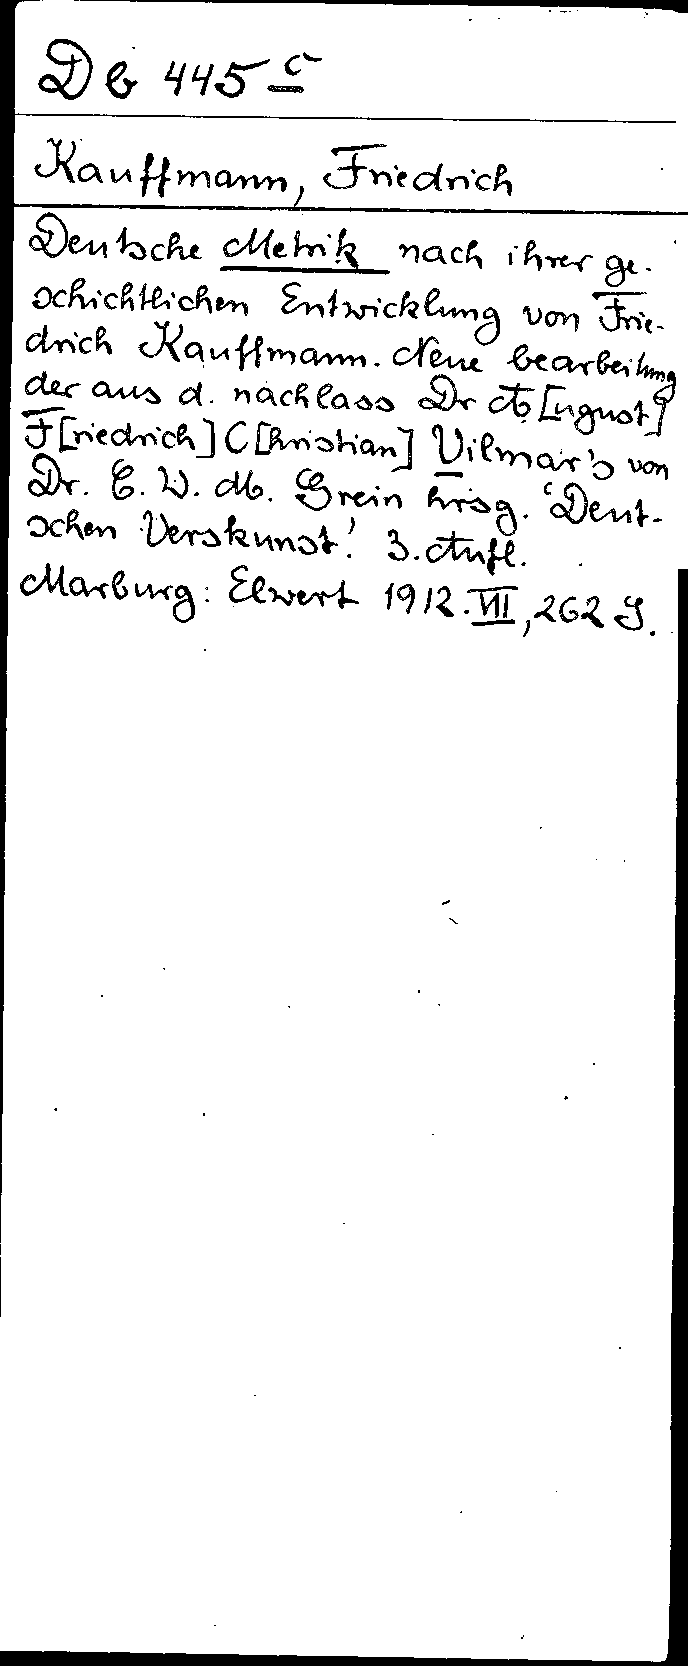 Db 445 c
Kauffmann, Friedrich
Deutsche Metrik nach ihrer ge-
schichtlichen Entwicklung von Frie-
drich Kauffmann. Neue bearbeitung
der aus d. nachlass Dr A[ugust]
F[riedrich] C[hristian] Vilmar's von
Dr. C. W. M. Grein hrsg. 'Deut-
schen Verskunst'. 3. Aufl.
Marburg: Elwert 1912. VIII, 262 S.